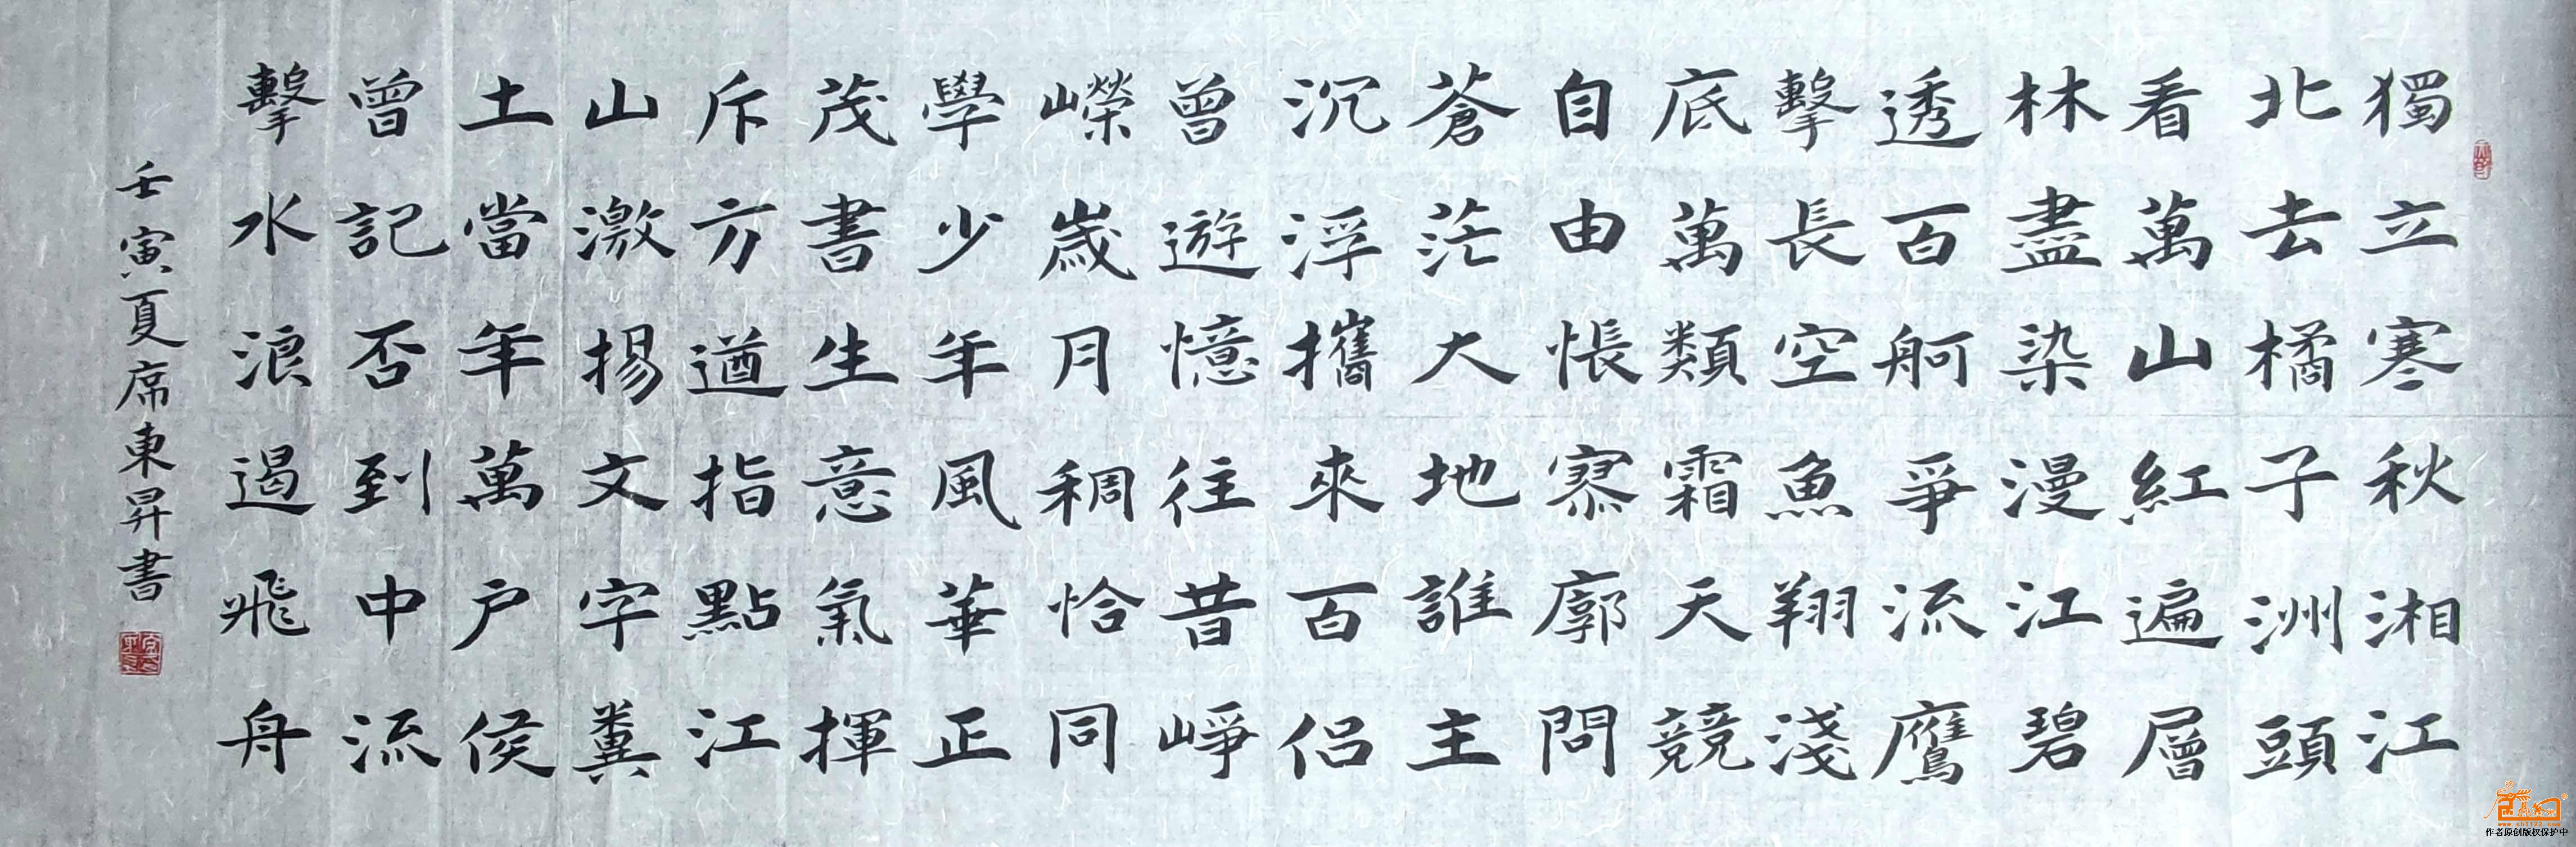 獨立寒秋湘江
北去橘子洲頭
看萬山紅遍層
林盡染漫江碧
透百舸爭流鷹
擊長空魚翔淺
底萬類霜天競
自由悵寥廓問
蒼茫大地誰主
沉浮攜來百侶
曾遊憶往昔崢
嶸歲月稠恰同
學少年風華正
茂書生意氣揮
斥方遒指點江
山激揚文字糞
土當年萬户侯
曾記否到中流
擊水浪遏飛舟
壬寅夏席東昇書
作者原创版权保护中